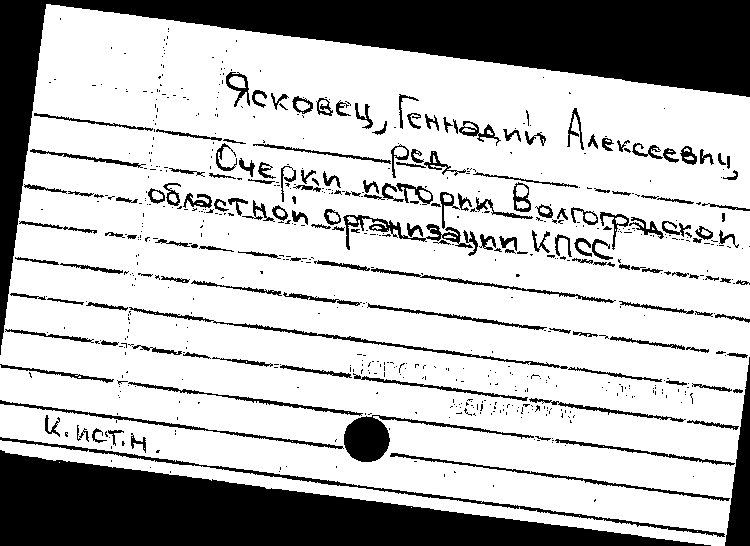 Ясковец, Геннадий Алексеевич,
ред.
Очерки истории Волгоградской
областной организации КПСС.
к.ист.н.